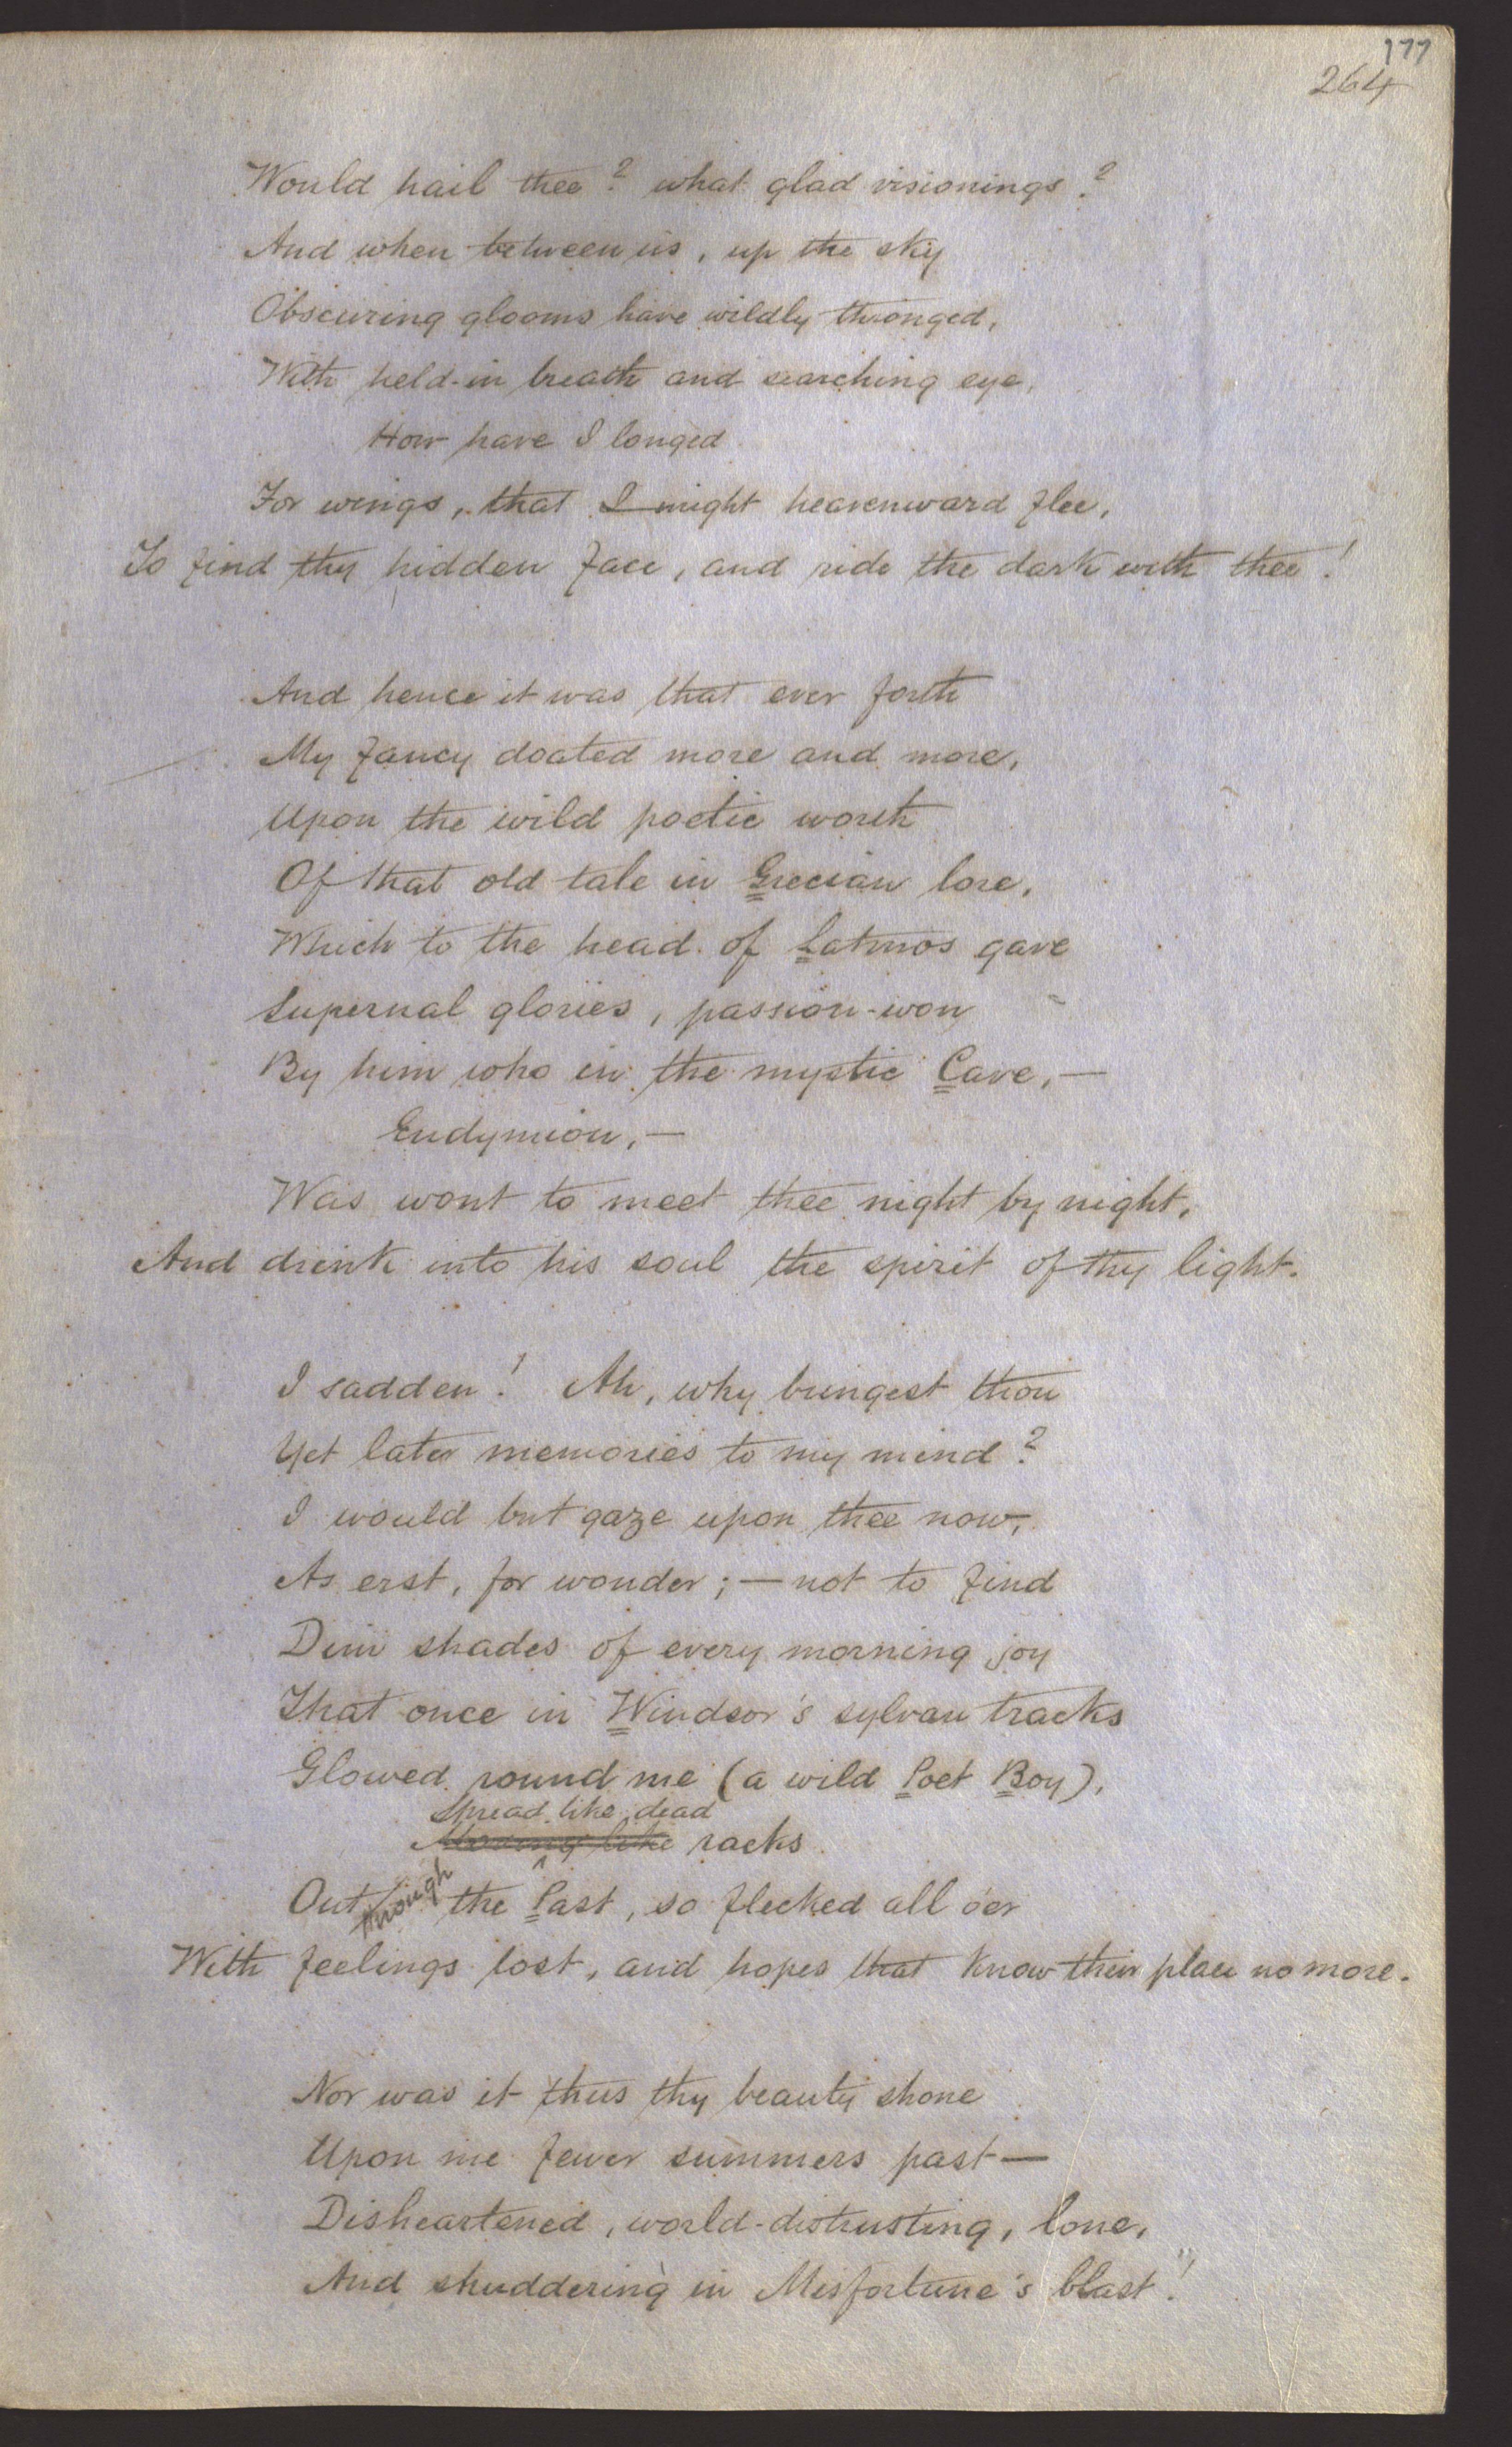 177
264
Would hail thee? what glad visionings?
And when between us, up the sky
Obscuring glooms have wildly thronged,
With held-in breath and searching eye,
How have I longed
For wings, that I might heavenward flee,
To find thy hidden face, and ride the dark with thee!
And hence it was that ever forth
My fancy doated more and more,
Upon the wild poetic worth
Of that old tale in Grecian lore,
Which to the head of Latmos gave
Supernal glories, passion-won
By him who in the mystic Cave,—
Endymion,—
Was wont to meet thee night by night,
And drink into his soul the spirit of thy light.
I sadden! Ah, why bringest thou
Yet later memories to my mind?
I would but gaze upon thee now,
As erst, for wonder;—not to find
Dim shades of every morning joy
That once in Windsor's sylvan tracks
Glowed round me (a wild Poet Boy),
Spread like dead
Moving like racks
Out through the Past, so flecked all o'er
With feelings lost, and hopes that know their place no more.
Nor was it thus thy beauty shone
Upon me fewer summers past—
Disheartened, world-distrusting, lone,
And shuddering in Misfortune's blast!